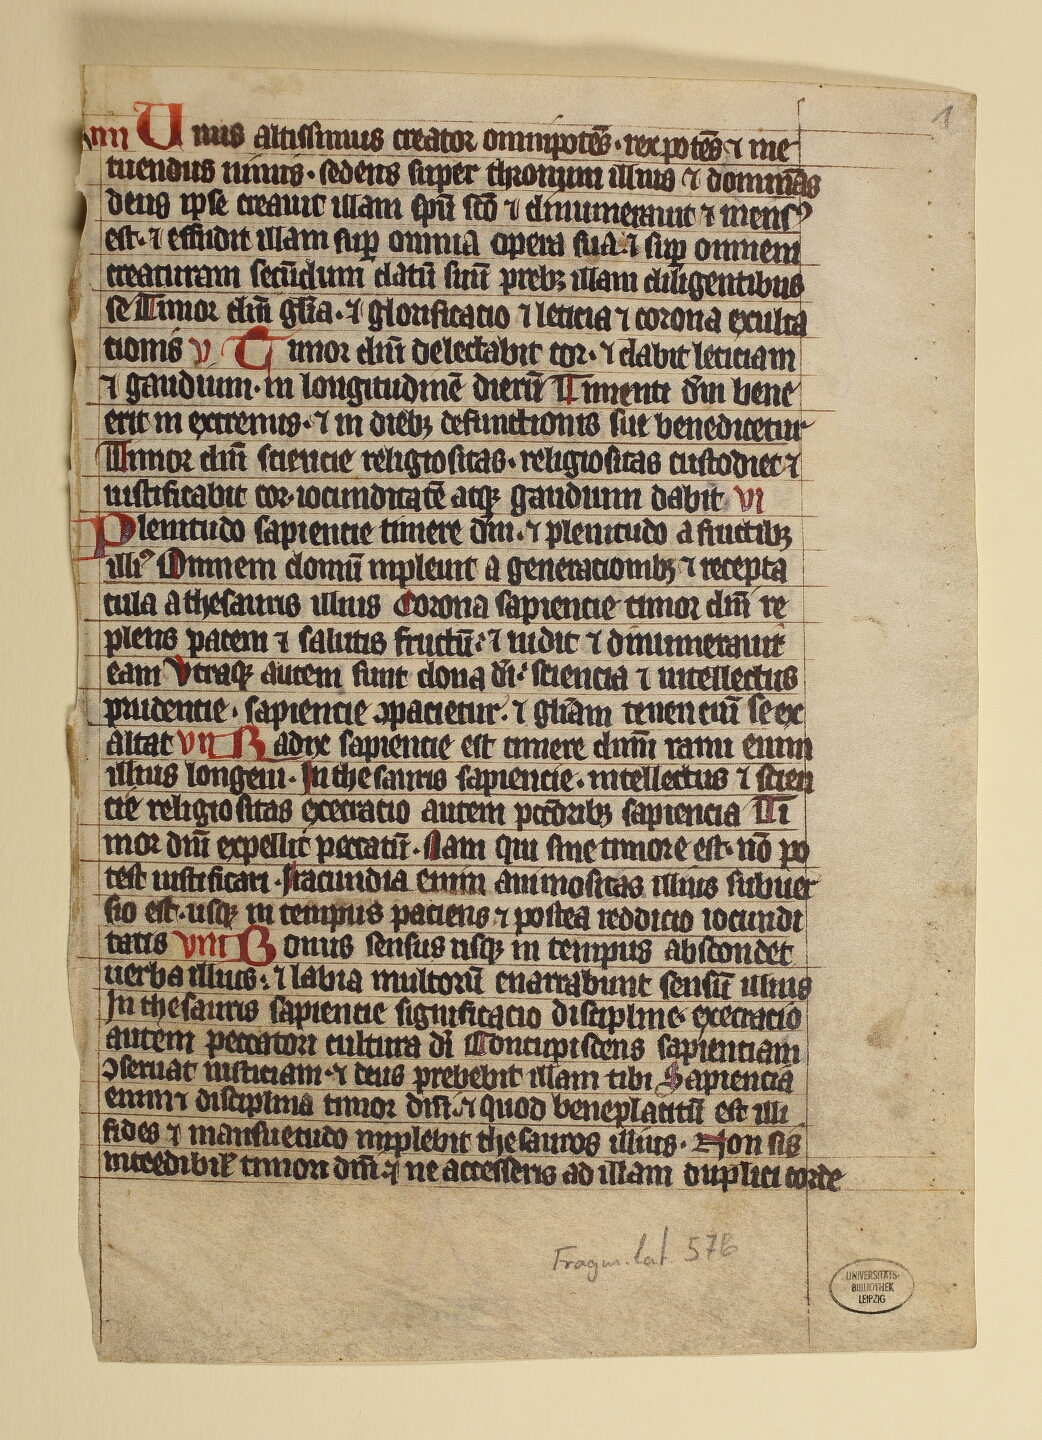 1
iiii Unus altissimus creator omnipotēs · rex potēs ⁊ me
tuendus nimis · sedens super thronum illius ⁊ dominās
deus ipse creauit illam spū scō ⁊ dinumerauit ⁊ mensꝰ
est · ⁊ effudit illam sup omnia opera sua · ⁊ sup omnem
creaturam secūdum datū suū prebꝫ illam diligentibus
se Timor dn̄i glīa · ⁊ glorificacio ⁊ leticia ⁊ corona exulta
tionis v Timor dn̄i delectabit cor · ⁊ dabit leticiam
⁊ gaudium · in longitudinē dierū Timenti dn̄m bene
erit in extremis · ⁊ in diebꝫ defunctionis sue benedicetur
Timor dn̄i sciencie religiositas · religiositas custodiet ⁊
iustificabit cor · iocunditatē atqꝫ gaudium dabit vi
Plenitudo sapiencie timere dm̄ · ⁊ plenitudo a fructibꝫ
illiꝰ Omnem domū impleuit a generacionibꝫ ⁊ recepta
cula a thesauris illius Corona sapiencie timor dn̄i re
plens pacem ⁊ salutis fructū · ⁊ uidit ⁊ dinumerauit
eam Vtraqꝫ autem sunt dona dī · sciencia ⁊ intellectus
prudencie · sapiencie ꝯpacietur · ⁊ glīam tenenciū se ex
altat vii Radix sapiencie est timere dn̄m rami enim
illius longeui · In thesauris sapiencie · intellectus ⁊ scien
cie religiositas execratio autem pctōribꝫ sapiencia Ti
mor dn̄i expellit peccatū · Nam qui sine timore est · nō po
test iustificari · Iracundia enim animositas illius subuer
sio est · usqꝫ in tempus paciens ⁊ postea reddicio iocundi
tatis viii Bonus sensus usqꝫ in tempus abscondet
uerba illius · ⁊ labia multorū enarrabunt sensū illius
In thesauris sapiencie significacio discipline · execratio
autem peccatori cultura dī Concupiscens sapienciam
ꝯseruat iusticiam · ⁊ deus prebebit illam tibi Sapiencia
enim ⁊ disciplina timor dn̄i · ⁊ quod beneplacitū est illi
fides ⁊ mansuetudo implebit thesauros illius · Non sis
incredibil' timori dn̄i · ⁊ ne accesseris ad illam duplici corde
Fragm. lat. 576
UNIVERSITÄTS-
BIBLIOTHEK
LEIPZIG